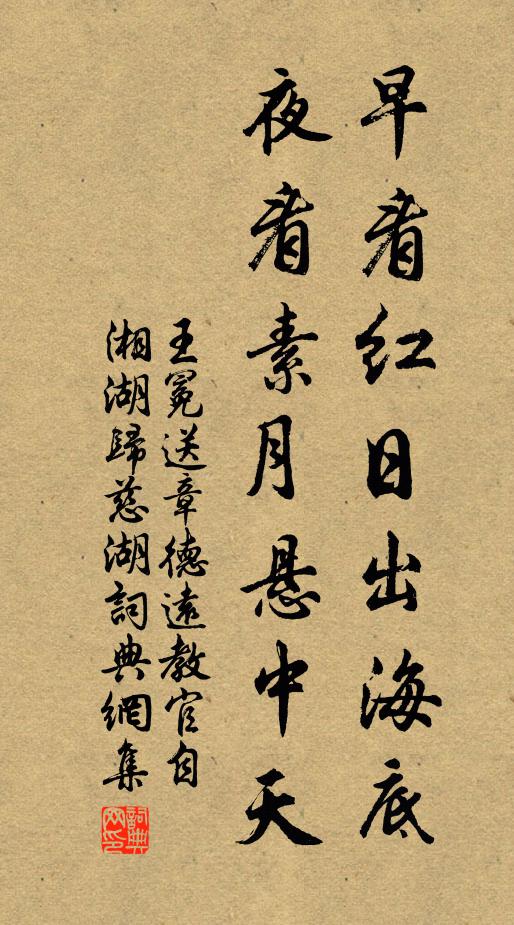 早看紅日出海底
夜看素月悬中天
王冕送章德遠教官自
湘湖歸慈湖詞典網集
詞典
网印